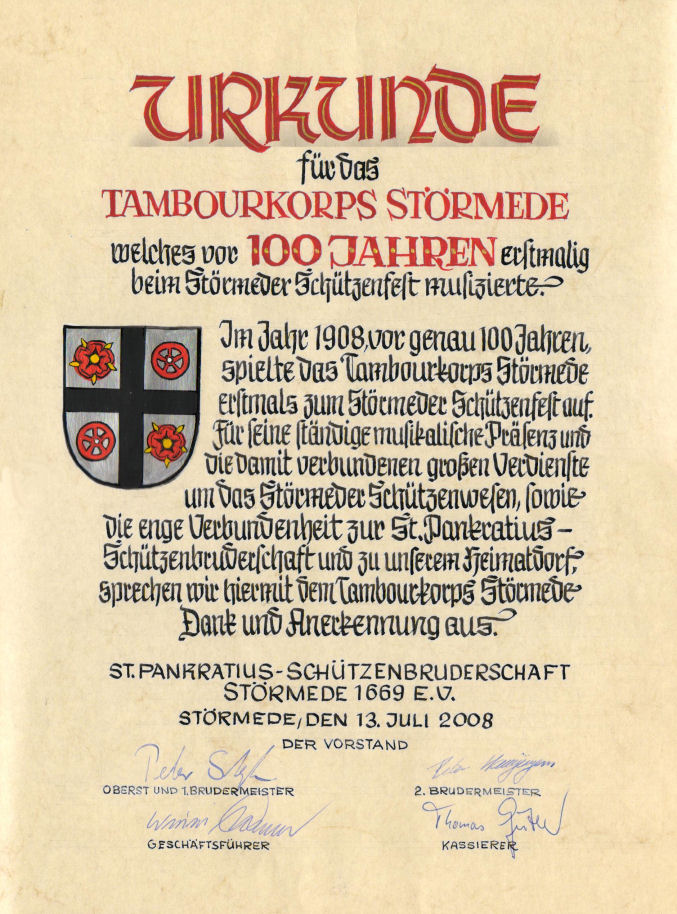 URKUNDE
für das
TAMBOURKORPS STÖRMEDE
welches vor 100 JAHREN erstmalig
beim Störmeder Schützenfest musizierte.
Im Jahr 1908, vor genau 100 Jahren,
spielte das Tambourkorps Störmede
erstmals zum Störmeder Schützenfest auf.
Für seine ständige musikalische Präsenz und
die damit verbundenen großen Verdienste
um das Störmeder Schützenwesen, sowie
die enge Verbundenheit zur St. Pankratius-
Schützenbruderschaft und zu unserem Heimatdorf,
sprechen wir hiermit dem Tambourkorps Störmede
Dank und Anerkennung aus.
ST. PANKRATIUS-SCHÜTZENBRUDERSCHAFT
STÖRMEDE 1669 E.V.
STÖRMEDE, DEN 13. JULI 2008
DER VORSTAND
Peter
OBERST UND 1. BRUDERMEISTER
2. BRUDERMEISTER
Thomas
GESCHÄFTSFÜHRER
KASSIERER